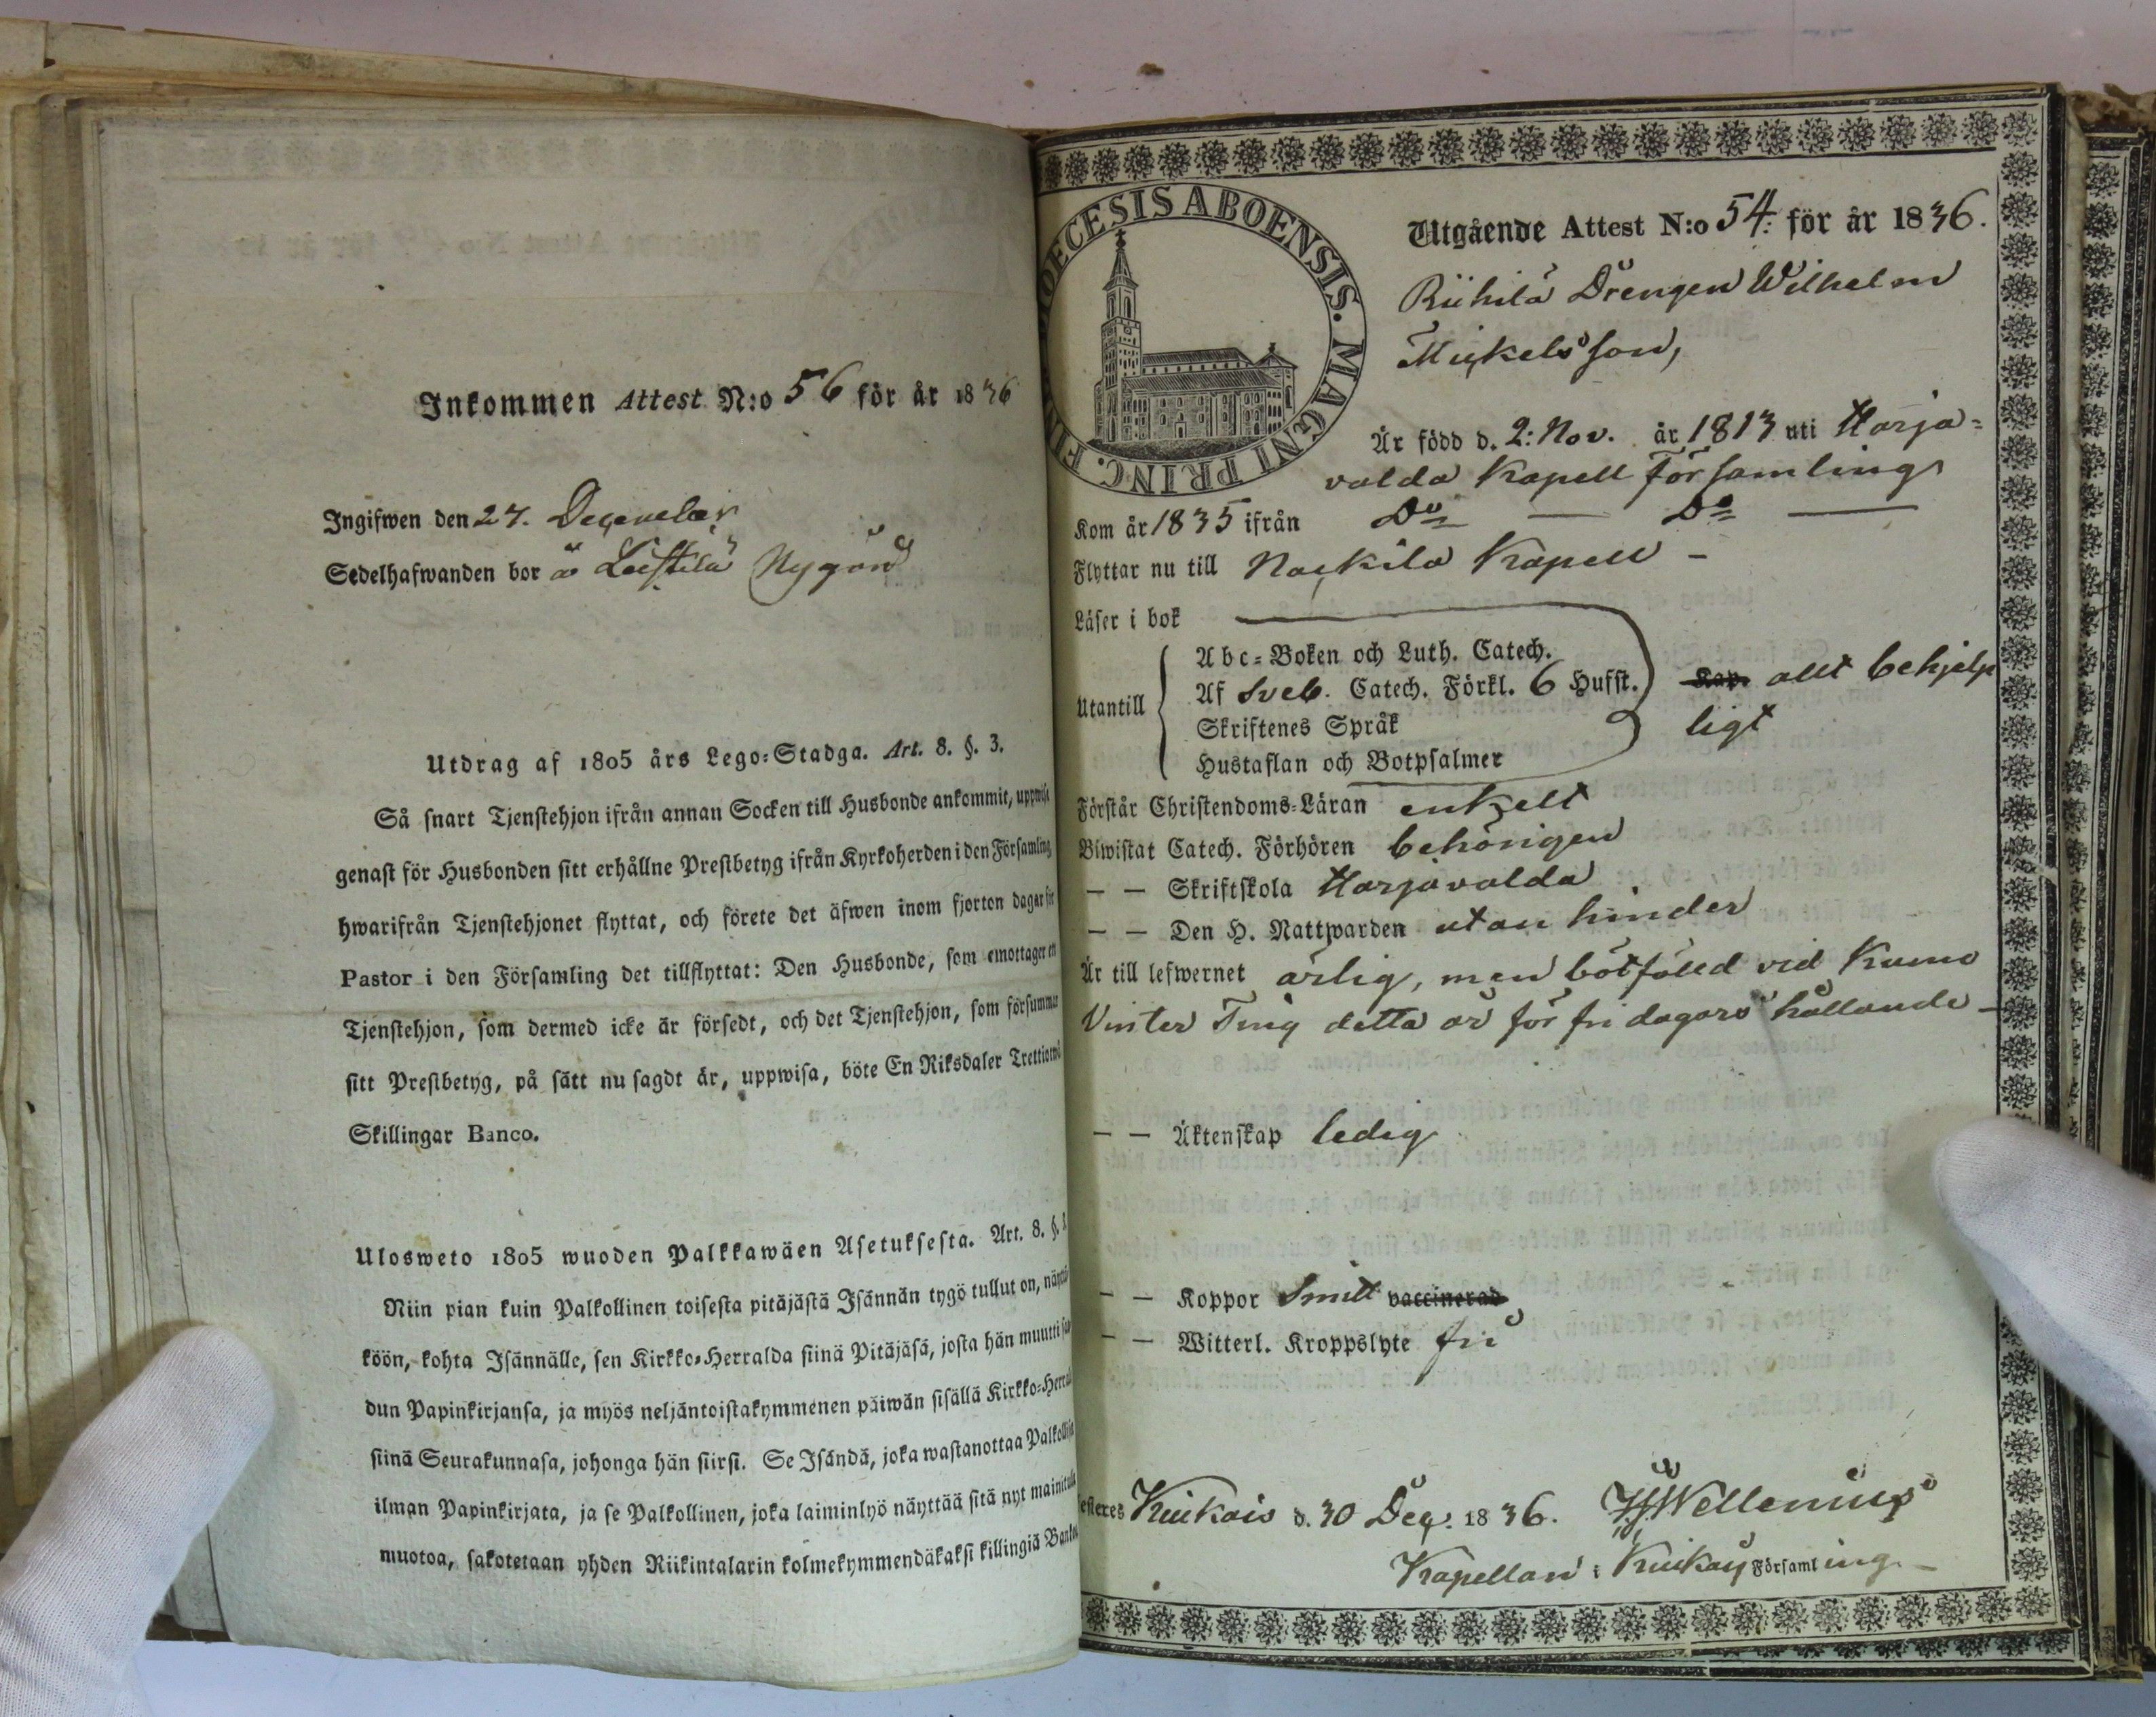 Inkommen Attest N:o 56 för år 1836
Ingifwen den 27. December
Sedelhafwanden bor å Leistilä Nygård
Utdrag af 1805 års Lego=Stadga. Art. 8. §. 3.
Så snart Tjenstehjon ifrån annan Socken till Husbonde ankommit, uppwise
genast för Husbonden sitt erhållne Prestbetyg ifrån Kyrkoherden i den Församling
hwarifrån Tjenstehjonet flyttat, och förete det äfwen inom fjorton dagar för
Pastor i den Församling det tillflyttat: Den Husbonde, som emottager en
Tjenstehjon, som dermed icke är försedt, och det Tjenstehjon, som försummar
sitt Prestbetyg, på sätt nu sagdt är, uppwisa, böte En Riksdaler Trettiotwå
Skillingar Banco.
Ulosweto 1805 wuoden Palkkawäen Asetuksesta. Art. 8. §.
Niin pian kuin Palkollinen toisesta pitäjästä Isännän tygö tullut on, näyttä
köön, kohta Isännälle, sen Kirkko=Herralda siinä Pitäjäsä, josta hän muutti saa
dun Papinkirjansa, ja myös neljäntoistakymmenen päiwän sisällä Kirkko=Herral
siinä Seurakunnasa, johonga hän siirsi. Se Isändä, joka wastanottaa Palkollisen
ilman Papinkirjata, ja se Palkollinen, joka laiminlyö näyttää sitä nyt mainitulla
muotoa, sakotetaan yhden Riikintalarin kolmekymmendäkaksi killingiä Bankos
DIOECESIS ABOENSIS. MAGNI PRINC. FIN
Utgående Attest N:o 54. för år 1836.
Riihilä Drengen Wilhelm
Mickelsson,
Är född d. 2: Nov. år 1813 uti Harja=
valda Kapell Församling
Kom år 1835 ifrån Do — Do —
Flyttar nu till Nackila Kapell –
Läser i bok
Utantill
Abc=Boken och Luth. Catech.
Af Sveb. Catech. Förkl. 6 Hufst. Kap. allt behjelp
Skriftenes Språk ligt
Hustaflan och Botpsalmer
Förstår Christendoms=Läran enkelt
Biwistat Catech. Förhören behörigen
— — Skriftskola Harjavalda
— — Den H. Nattwarden utan hinder
Är till lefwernet ärlig, men bötfälld vid Kumo
Vinter Ting detta år för fridagars hållande –
— — Äktenskap ledig
— — Koppor Smitt vaccinerad
— — Witterl. Kroppslyte fri
esteres Kiukais d. 30 Dec. 1836. Wellenius
Kapellan i Kiukais Församling –